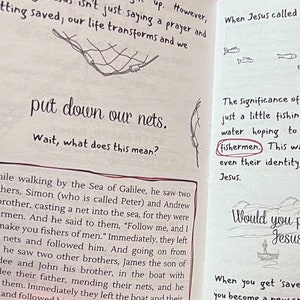 up. However,
isn't just saying a prayer and
tting saved; our life transforms and we
put down our nets.
Wait, what does this mean?
hile walking by the Sea of Galilee, he saw two
thers, Simon (who is called Peter) and Andrew
brother, casting a net into the sea, for they were
ermen. And he said to them, "Follow me, and I
make you fishers of men." Immediately, they left
nets and followed him. And going on from
he saw two other brothers, James the son of
dee and John his brother, in the boat with
dee their father, mending their nets, and he
them. Immediately they left the boat and their
and followed
When Jesus called
The significance of
just a little fishin
water hoping to
fishermen. This wa
even their identity,
Jesus.
Would you p
Jesus
When you get 'save
you become a